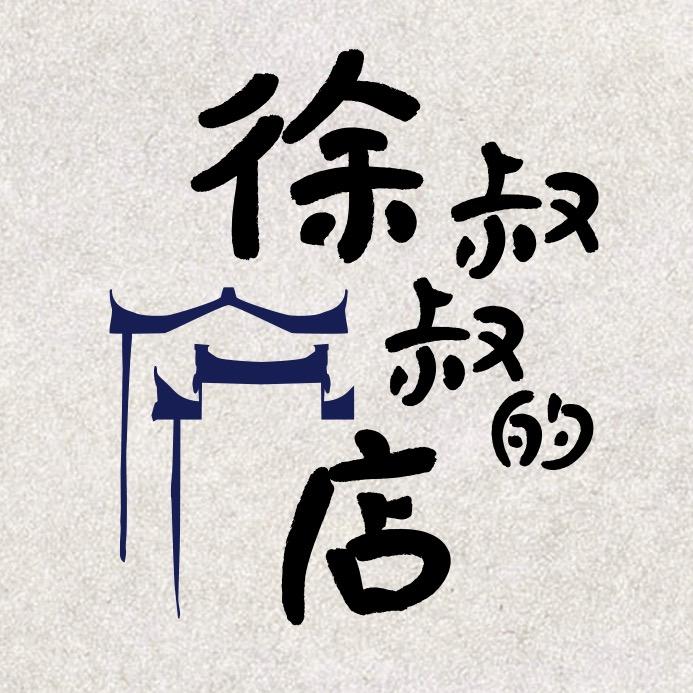 徐叔叔的店